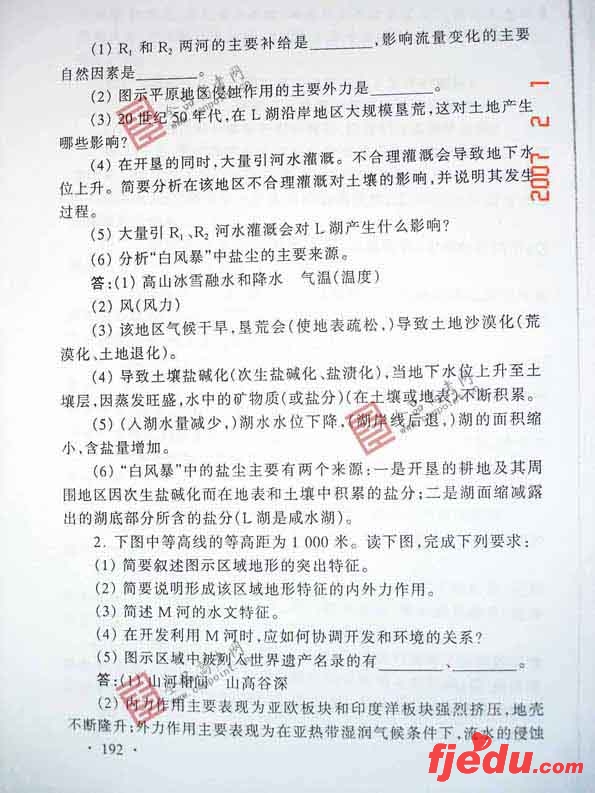 (1) R₁ 和 R₂ 两河的主要补给是________,影响流量变化的主要
自然因素是________。
(2) 图示平原地区侵蚀作用的主要外力是________。
(3) 20 世纪 50 年代,在 L 湖沿岸地区大规模垦荒,这对土地产生
哪些影响?
(4) 在开垦的同时,大量引河水灌溉。不合理灌溉会导致地下水
位上升。简要分析在该地区不合理灌溉对土壤的影响,并说明其发生
过程。
(5) 大量引 R₁、R₂ 河水灌溉会对 L 湖产生什么影响?
(6) 分析“白风暴”中盐尘的主要来源。
答:(1) 高山冰雪融水和降水 气温(温度)
(2) 风(风力)
(3) 该地区气候干旱,垦荒会(使地表疏松,)导致土地沙漠化(荒
漠化、土地退化)。
(4) 导致土壤盐碱化(次生盐碱化、盐渍化),当地下水位上升至土
壤层,因蒸发旺盛,水中的矿物质(或盐分)(在土壤或地表)不断积累。
(5) (入湖水量减少,)湖水水位下降,(湖岸线后退,)湖的面积缩
小,含盐量增加。
(6) “白风暴”中的盐尘主要有两个来源:一是开垦的耕地及其周
围地区因次生盐碱化而在地表和土壤中积累的盐分;二是湖面缩减露
出的湖底部分所含的盐分(L 湖是咸水湖)。
2. 下图中等高线的等高距为 1 000 米。读下图,完成下列要求:
(1) 简要叙述图示区域地形的突出特征。
(2) 简要说明形成该区域地形特征的内外力作用。
(3) 简述 M 河的水文特征。
(4) 在开发利用 M 河时,应如何协调开发和环境的关系?
(5) 图示区域中被列入世界遗产名录的有________、________。
答:(1) 山河相间 山高谷深
(2) 内力作用主要表现为亚欧板块和印度洋板块强烈挤压,地壳
不断隆升;外力作用主要表现为在亚热带湿润气候条件下,流水的侵蚀
· 192 ·
2007 2 1
fjedu.com